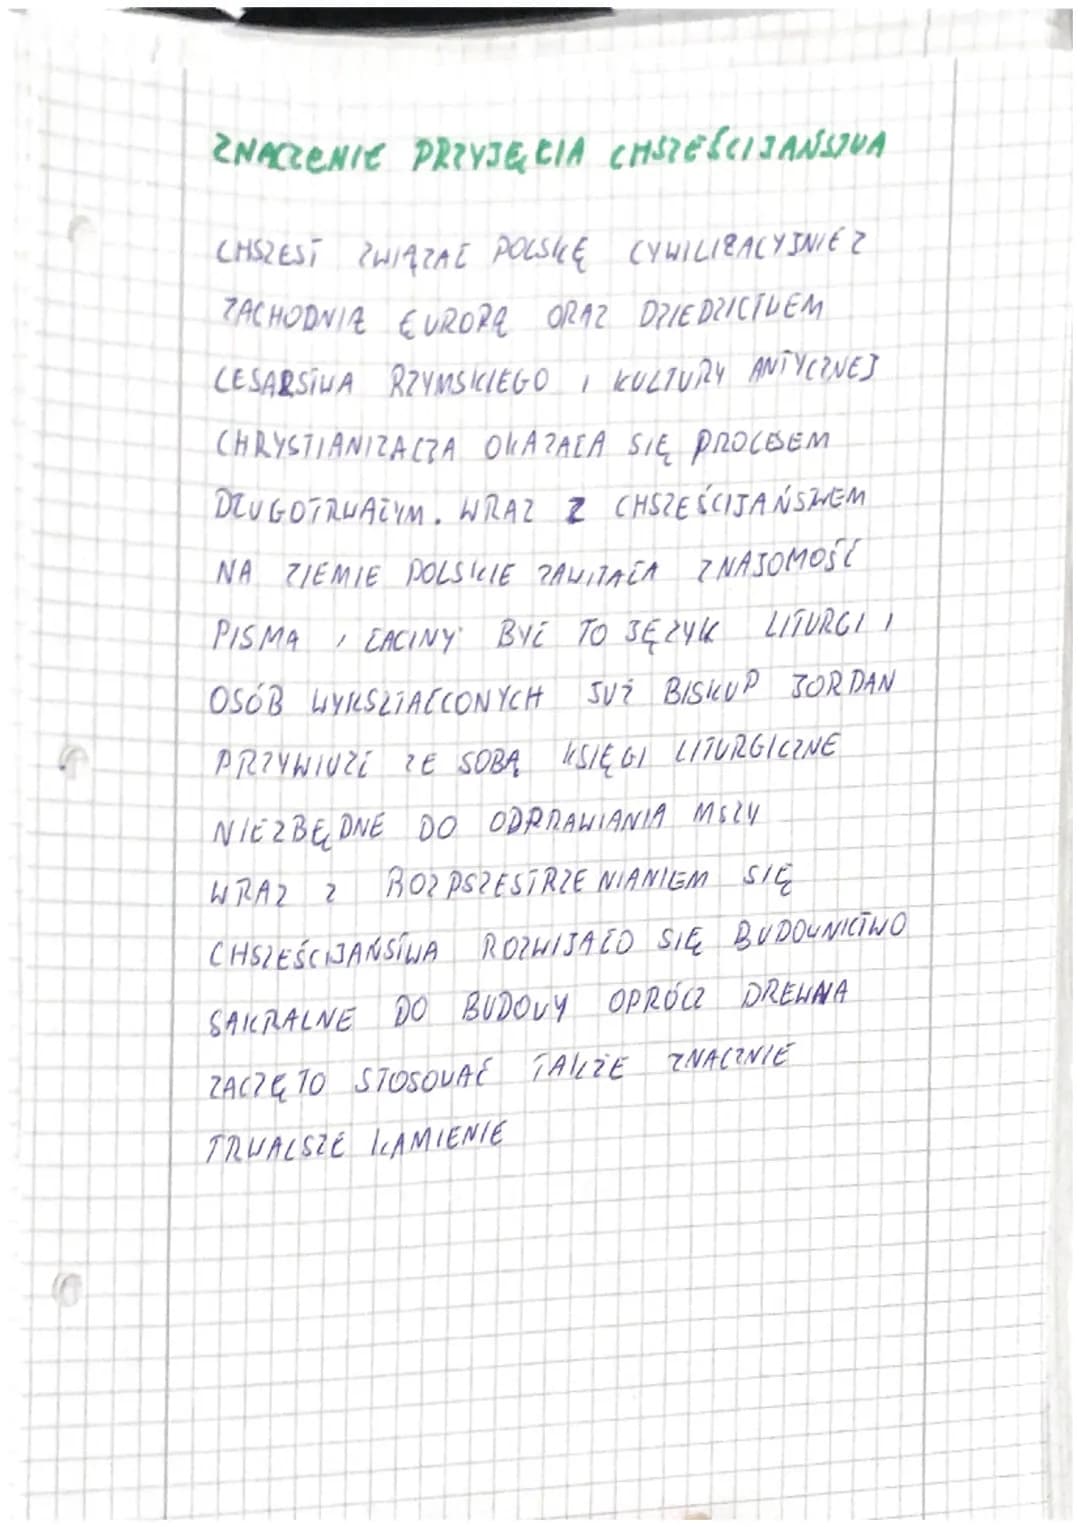 ZNACZENIE PRZYJĘCIA CHSZEŚCIJAŃSTWA
CHSZEST ZWIĄZAŁ POLSKĘ CYWILIZACYJNIE Z
ZACHODNIĄ EUROPĄ ORAZ DZIEDZICTWEM
CESARSTWA RZYMSKIEGO I KULTURY ANTYCZNEJ
CHRYSTIANIZACJA OKAZAŁA SIĘ PROCESEM
DŁUGOTRWAŁYM. WRAZ Z CHSZEŚCIJAŃSWEM
NA ZIEMIE POLSKIE ZAWITAŁA ZNAJOMOŚĆ
PISMA I ŁACINY BYŁ TO JĘZYK LITURGI I
OSÓB WYKSZTAŁCONYCH JUŻ BISKUP JORDAN
PRZYWIUZŁ ZE SOBĄ KSIĘGI LITURGICZNE
NIEZBĘDNE DO ODPRAWIANIA MSZY
WRAZ Z ROZPSZESTRZENIANIEM SIĘ
CHSZEŚCIJAŃSTWA ROZWIJAŁO SIĘ BUDOWNICTWO
SAKRALNE DO BUDOWY OPRÓCZ DREWNA
ZACZĘTO STOSOWAĆ TAKŻE ZNACZNIE
TRWALSZE KAMIENIE